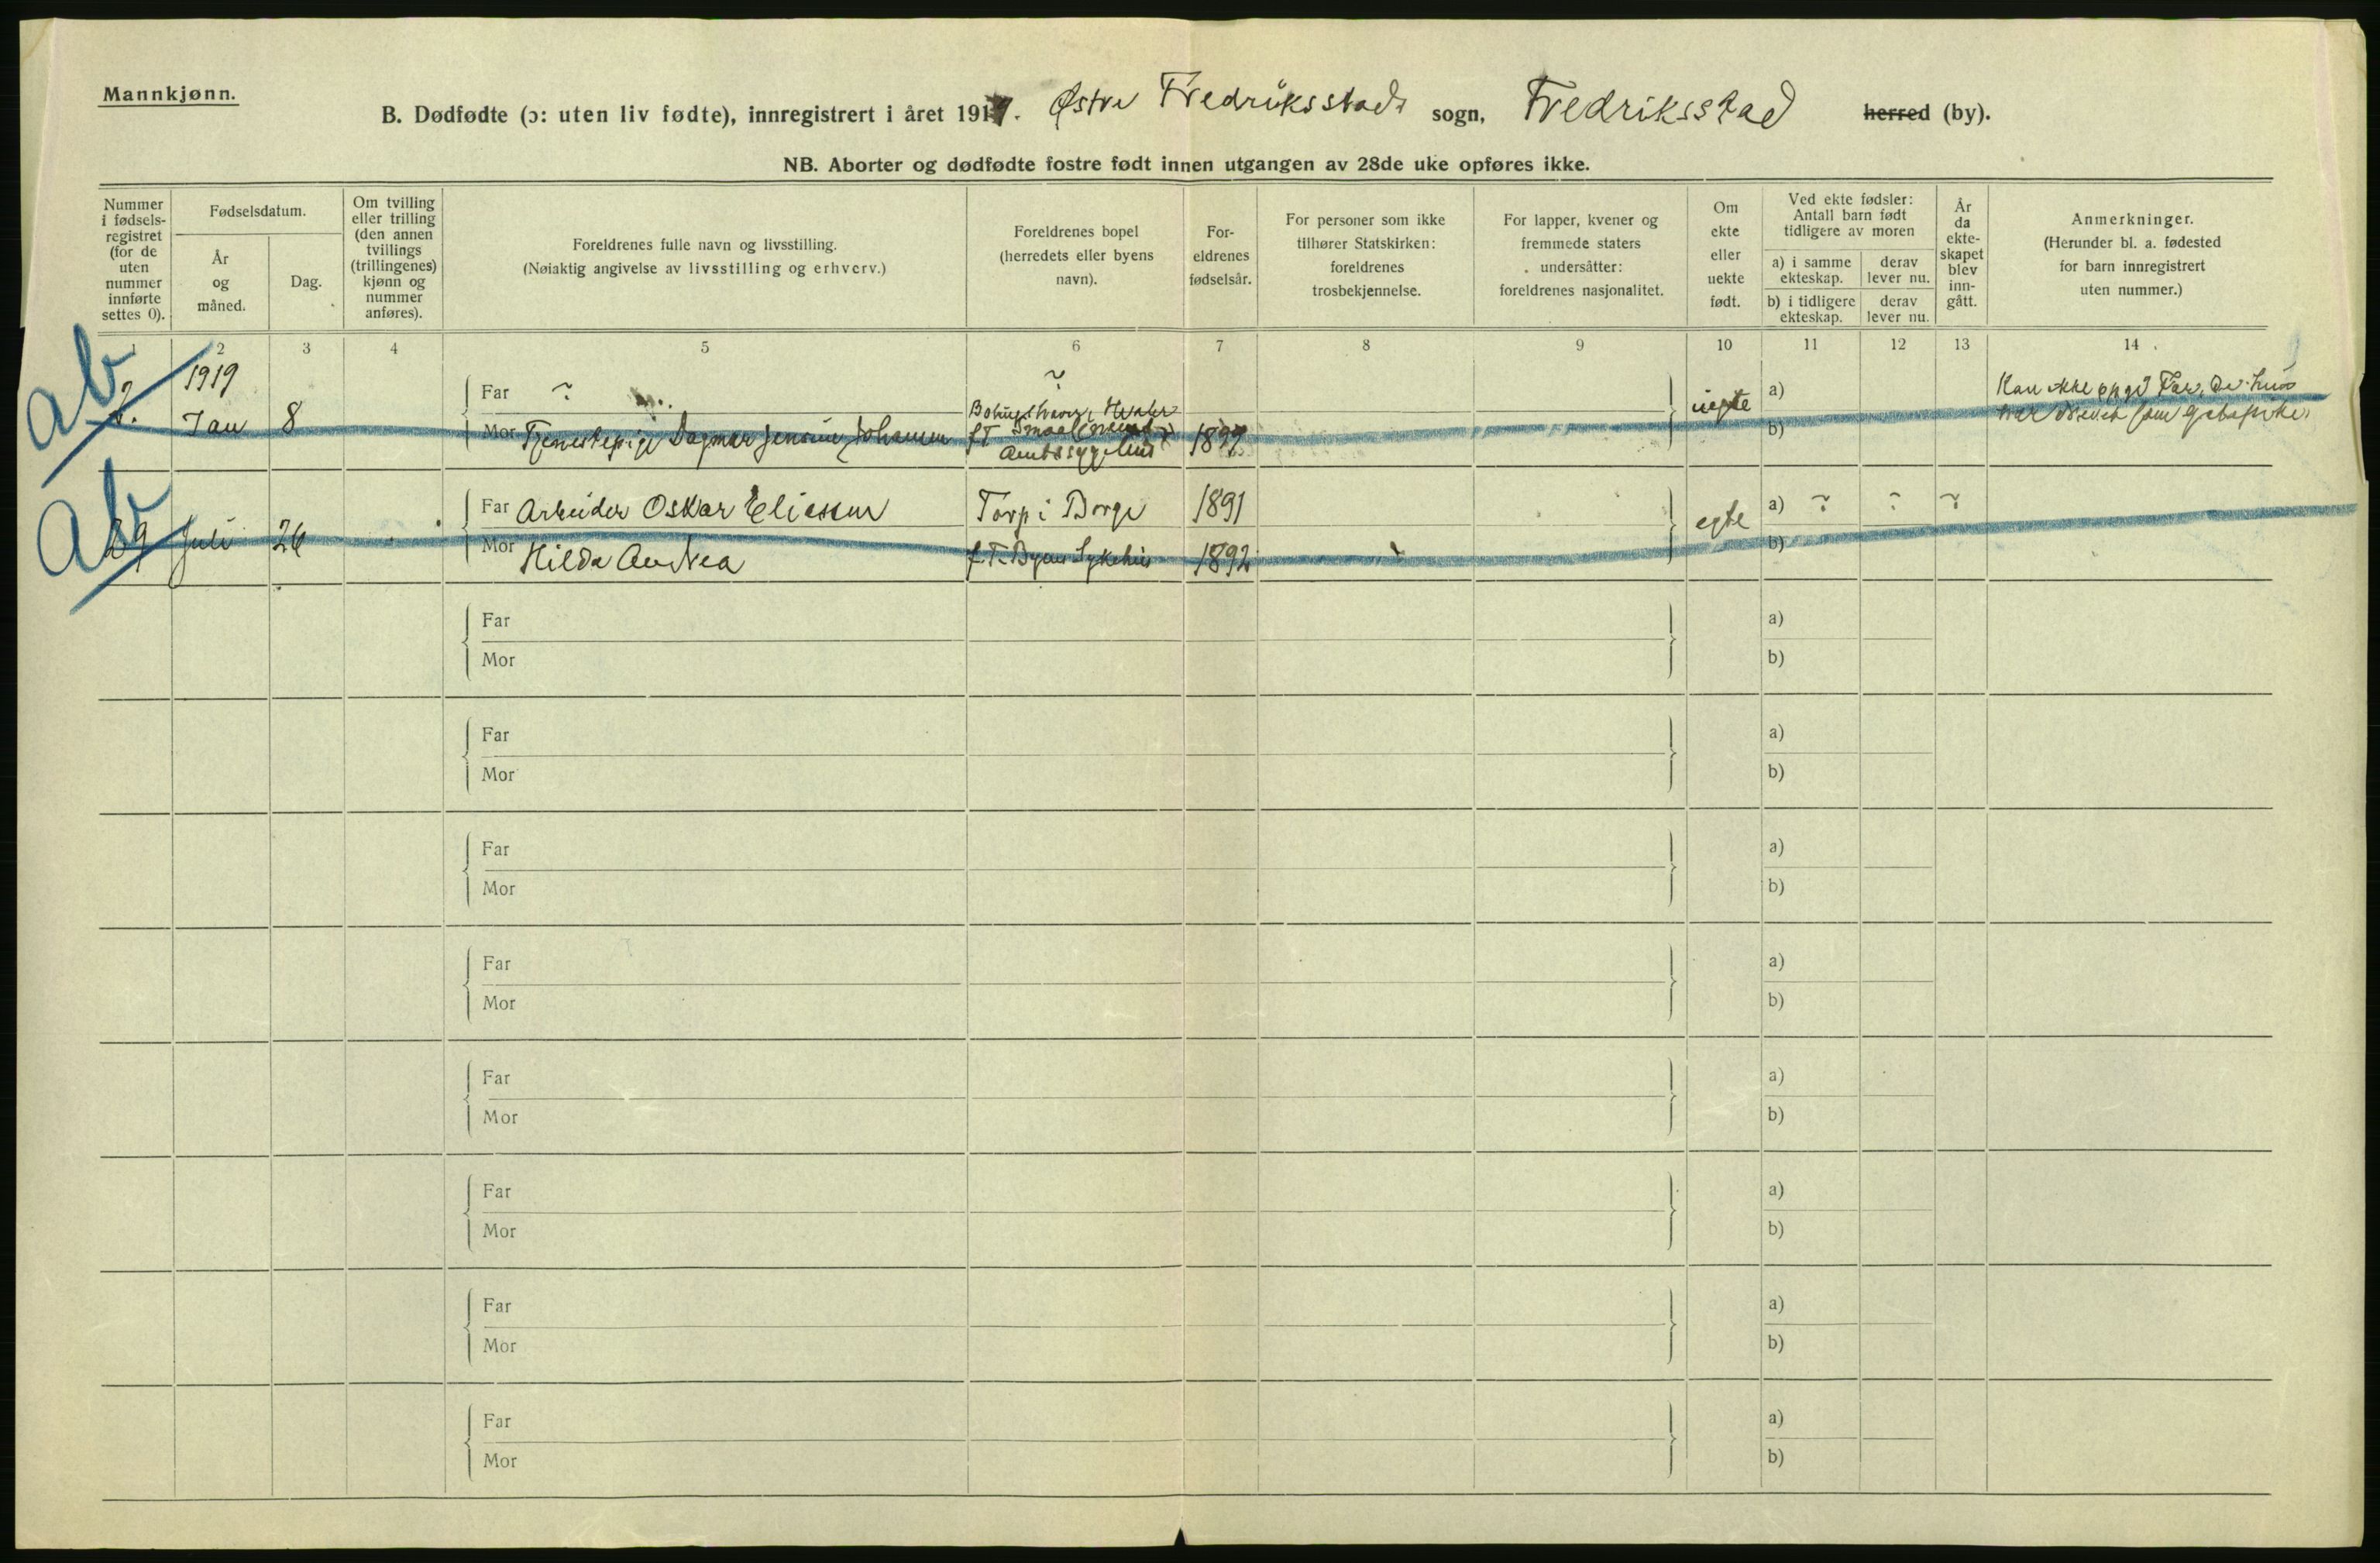 Mannkjønn.
B. Dødfødte (ɔ: uten liv fødte), innregistrert i året 1919. Østre Fredriksstads sogn, Fredriksstad herred (by).
NB. Aborter og dødfødte fostre født innen utgangen av 28de uke opføres ikke.
Nummer
i fødsels-
registret
(for de
uten
nummer
innførte
settes 0).
Fødselsdatum.
År
og
måned.
Dag.
Om tvilling
eller trilling
(den annen
tvillings
(trillingenes)
kjønn og
nummer
anføres).
Foreldrenes fulle navn og livsstilling.
(Nøiaktig angivelse av livsstilling og erhverv.)
Foreldrenes bopel
(herredets eller byens
navn).
For-
eldrenes
fødselsår.
For personer som ikke
tilhører Statskirken:
foreldrenes
trosbekjennelse.
For lapper, kvener og
fremmede staters
undersåtter:
foreldrenes nasjonalitet.
Om
ekte
eller
uekte
født.
Ved ekte fødsler:
Antall barn født
tidligere av moren
a) i samme
ekteskap.
derav
lever nu.
b) i tidligere
ekteskap.
derav
lever nu.
År
da
ekte-
skapet
blev
inn-
gått.
Anmerkninger.
(Herunder bl. a. fødested
for barn innregistrert
uten nummer.)
1 2 3 4 5 6 7 8 9 10 11 12 13 14
ab
1919
Jan 8
Far ~ ~
Mor Tjenestepige Dagmar Jensine Johansen
Hvaler
fT Smaalenenes
Amtssygehus
1897
uegte
a)
b)
Kan ikke opgi Far. De hus
som
Ab
29 Juli 26
Far Arbeider Oskar Eliassen Torp i Borge 1891
Mor Hilda Andrea f.T. Byens Sykehus 1892
egte
a) ~ ~ ~
b)
Far a)
Mor b)
Far a)
Mor b)
Far a)
Mor b)
Far a)
Mor b)
Far a)
Mor b)
Far a)
Mor b)
Far a)
Mor b)
Far a)
Mor b)